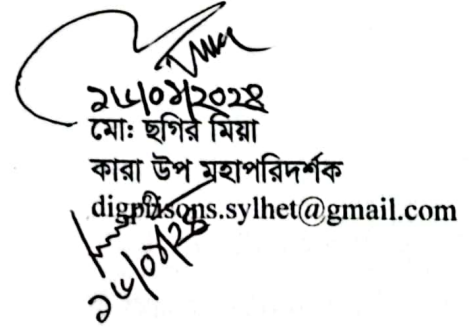 ২৬/০১/২০২৪
মো: ছগির মিয়া
কারা উপ মহাপরিদর্শক
digprisons.sylhet@gmail.com
২৬/০১/২৪